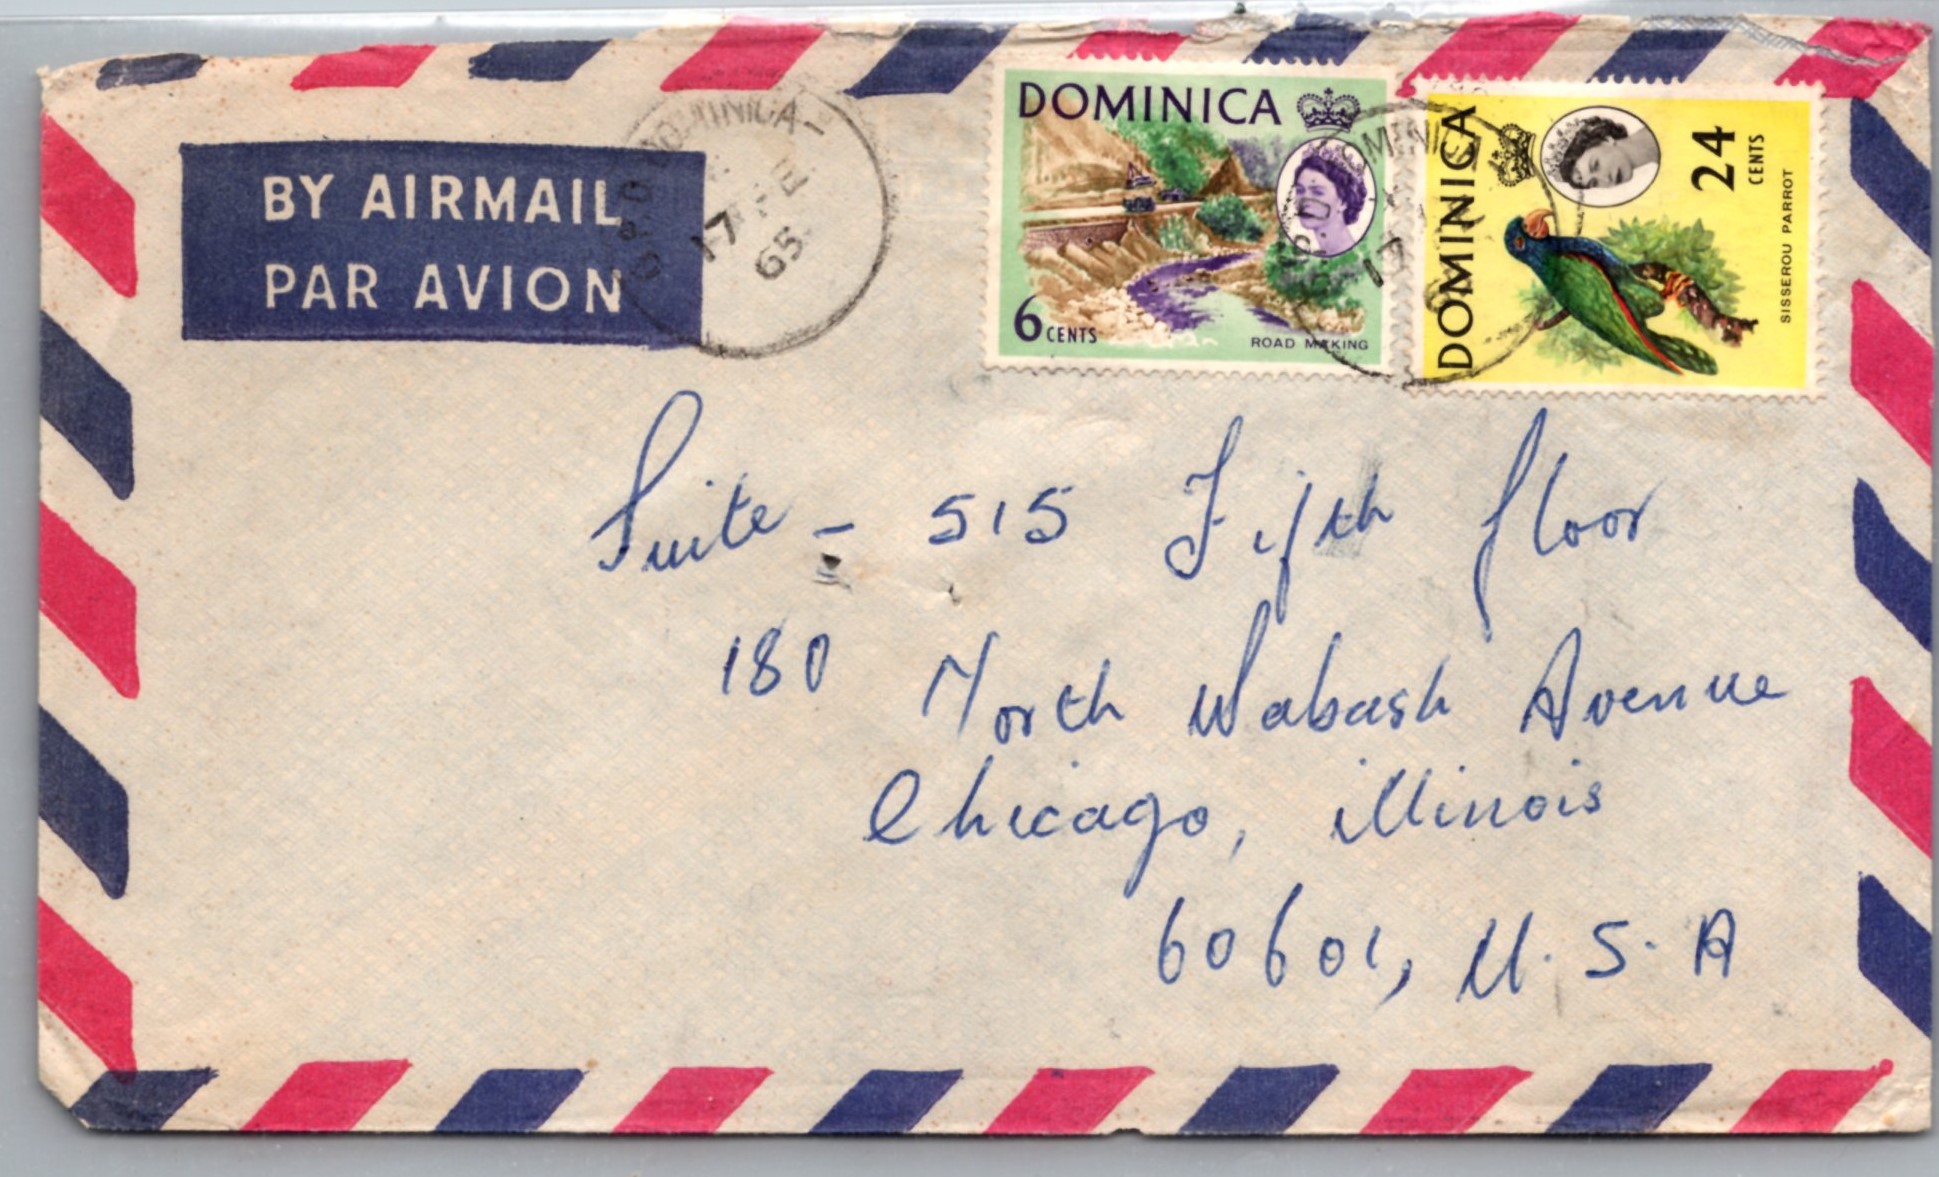 BY AIRMAIL
PAR AVION
G.P.O. DOMINICA
17 FE
65
DOMINICA
6 CENTS
ROAD MAKING
DOMINICA
24 CENTS
SISSEROU PARROT
Suite - 515 Fifth floor
180 North Wabash Avenue
Chicago, illinois
60601, U.S.A